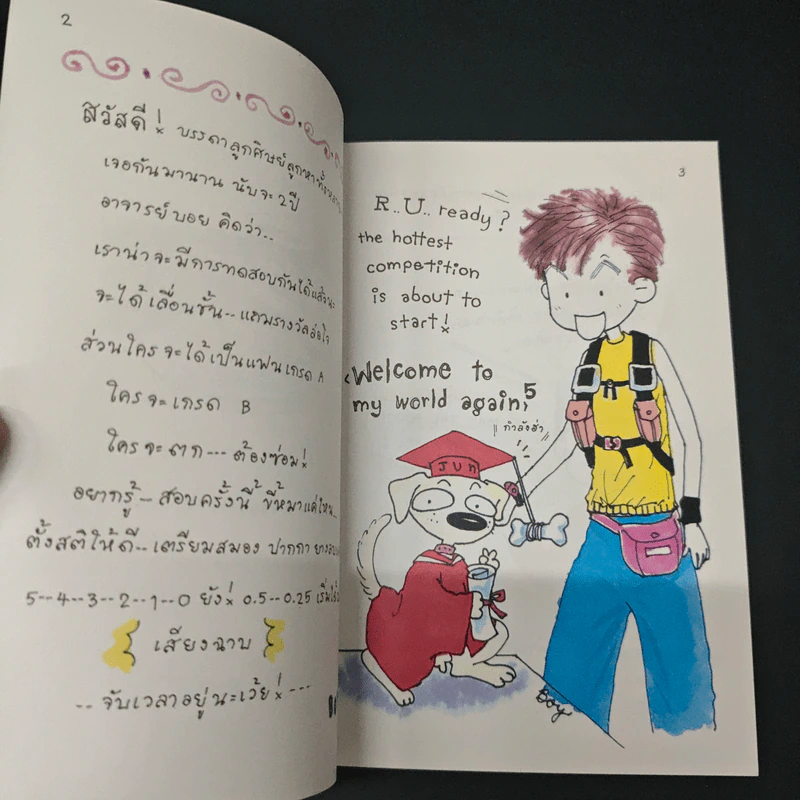 2
สวัสดี! บรรดาลูกศิษย์ลูกหา
เจอกันมานาน นับจะ 2 ปี
อาจารย์บอย คิดว่า..
เราน่าจะมีการทดสอบกันได้แล้วนะ
จะได้เลื่อนชั้น-- แถมรางวัลล่อใจ
ส่วนใครจะได้เป็นแฟนเกรด A
ใครจะเกรด B
ใครจะตก--- ต้องซ่อม!
อยากรู้-- สอบครั้งนี้ ขี้หมาแค่ไหน..
ตั้งสติให้ดี-- เตรียมสมอง ปากกา
5--4--3--2--1--0 ยัง! 0.5--0.25
เสียงฉาบ
-- จับเวลาอยู่นะเว้ย! ---
3
R..U.. ready?
the hottest
competition
is about to
start!
Welcome to
my world again,5
กำลังฮ่ำ
JUN
Boy